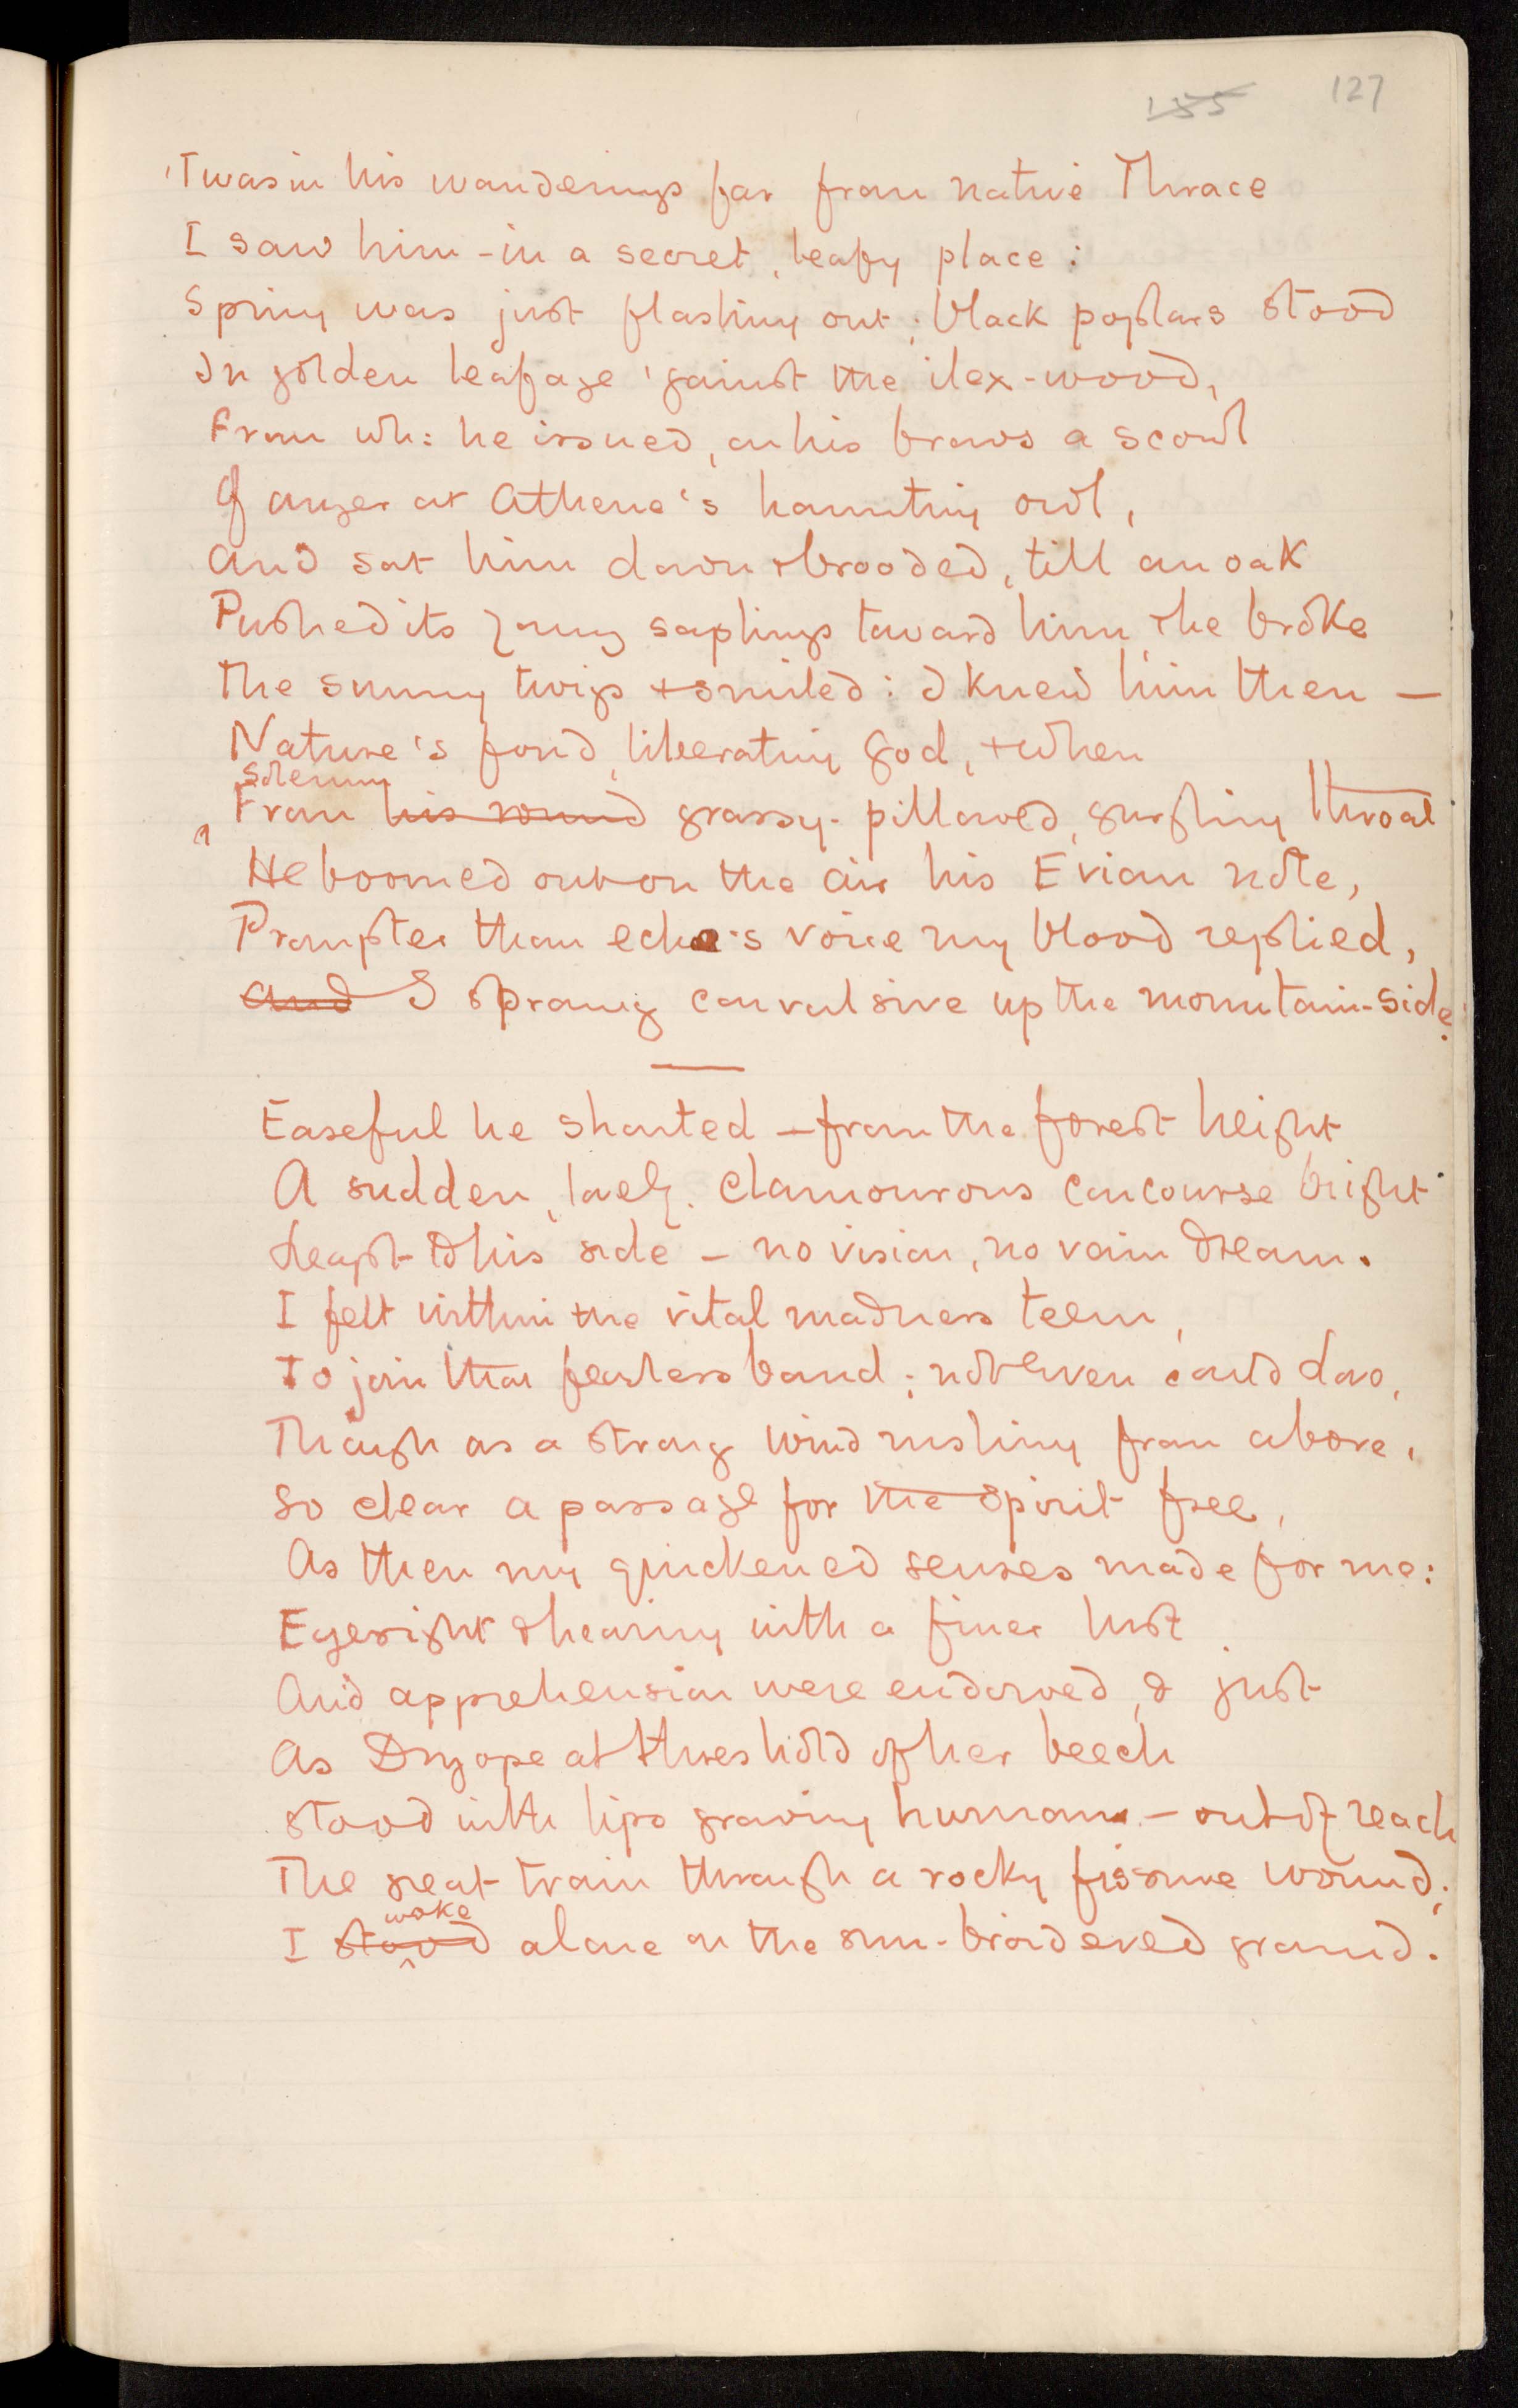 155 127
'Twas in his wanderings far from native Thrace
I saw him - in a secret, leafy place:
Spring was just flashing out; black poplars stood
In golden leafage 'gainst the ilex-wood,
From wh: he issued, on his brows a scowl
Of anger at Athene's haunting owl,
And sat him down & brooded, till an oak
Pushed its young saplings toward him, & he broke
The sunny twigs & smiled: I knew him then —
Nature's fond, liberating god, & when
solemn
From his round grassy-pillowed, gushing throat
He boomed out on the air his Evian note,
Prompter than echo's voice my blood replied,
And I sprang convulsive up the mountain-side.
Easeful he shouted — from the forest height
A sudden, lovely, clamourous concourse bright
Leapt to his side — no vision, no vain dream.
I felt within the vital madness teem,
To join that fearless band; not even could Love,
Though as a strong wind rushing from above,
So clear a passage for the spirit free,
As then my quickened senses made for me:
Eyesight & hearing with a finer lust
And apprehension were endowed, & just
As Dryope at threshold of her beech
Stood with lips growing human — out of reach
The great train through a rocky fissure wound;
woke
I stood alone on the sun-broidered ground.